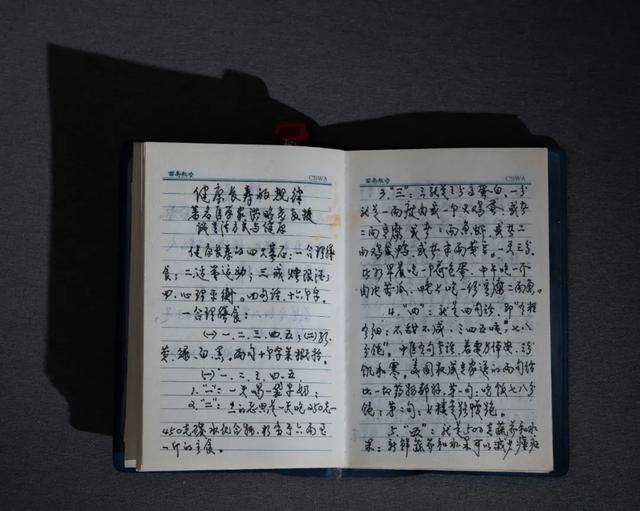 CSWA
健康长寿的规律
著名医学家洪昭光教授
谈生活方式与健康
健康长寿的四大基石:一合理膳
食;二适量运动;三戒烟限酒;
四、心理平衡。四句话,十六个字。
一合理膳食:
㈠一、二、三、四、五;㈡红、
黄、绿、白、黑。两句十个字来概括。
㈠一、二、三、四、五
1、"一":一天喝一袋牛奶;
2、"二": 250克—
450克碳水化合物,相当于六两至
一斤的主食。
CSWA
3、"三":三就是3份高蛋白,一份
就是一两瘦肉或一个大鸡蛋、或者
二两豆腐、或者二两鱼虾、或者二
两鸡或鸭,或者半两黄豆。一天三份。
早晨吃一个荷包蛋,中午吃一个
肉片苦瓜,晚上吃 豆腐二两。
4、"四":就是四句话,即"有粗
有细;不甜不咸,三四五顿,七八
分饱"。中医有句老话,若要身体安,三分
饥和寒。美国权威专家说的两句话
比一切药物都好,第一句:吃饭七八分
饱;第二句:
5、"五":就是500克蔬菜和水
果:新鲜蔬菜和水果可以减少癌症